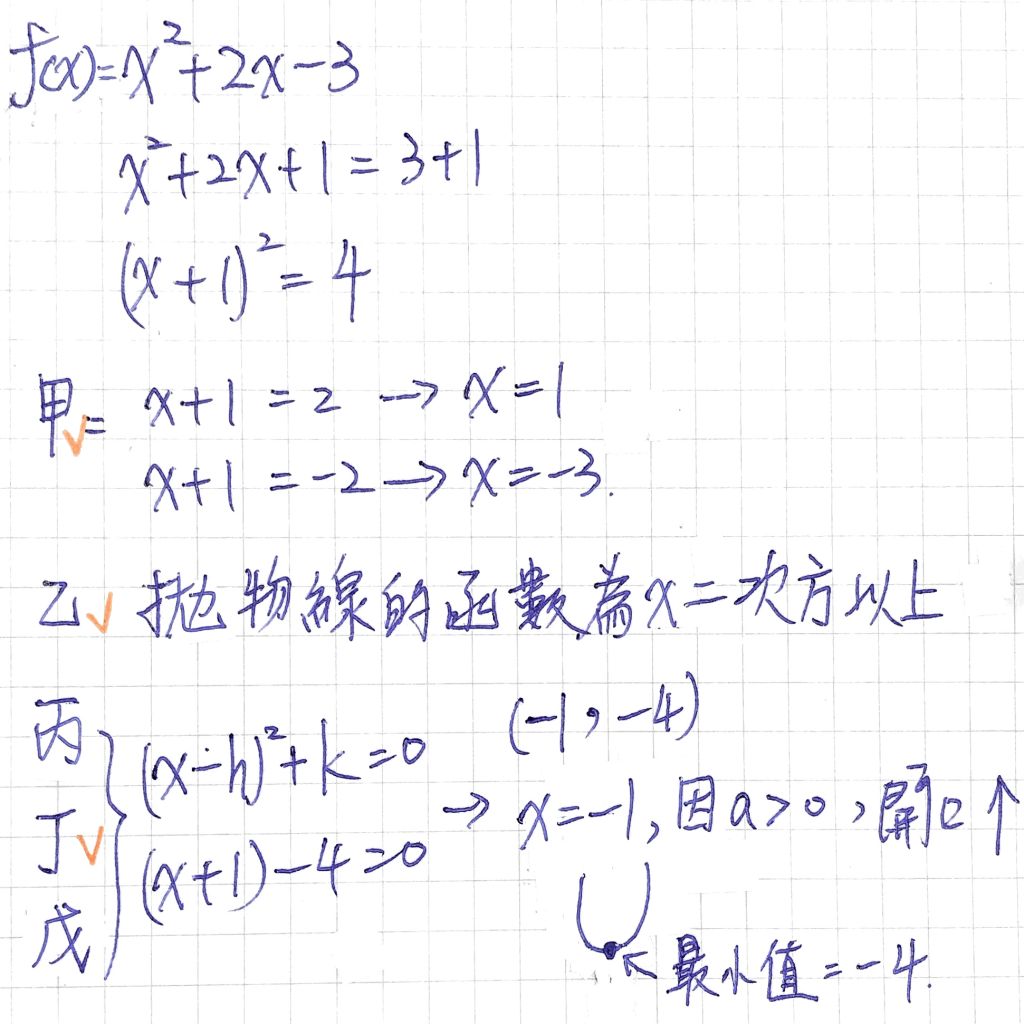 f(x)=x²+2x-3
x²+2x+1=3+1
(x+1)²=4
甲✓= x+1=2 → x=1
x+1=-2 → x=-3.
乙✓ 拋物線的函數為x二次方以上
丙 (x-h)²+k=0 (-1,-4)
丁✓ → x=-1,因a>0,開口↑
(x+1)-4=0
戊
↖最小值=-4.